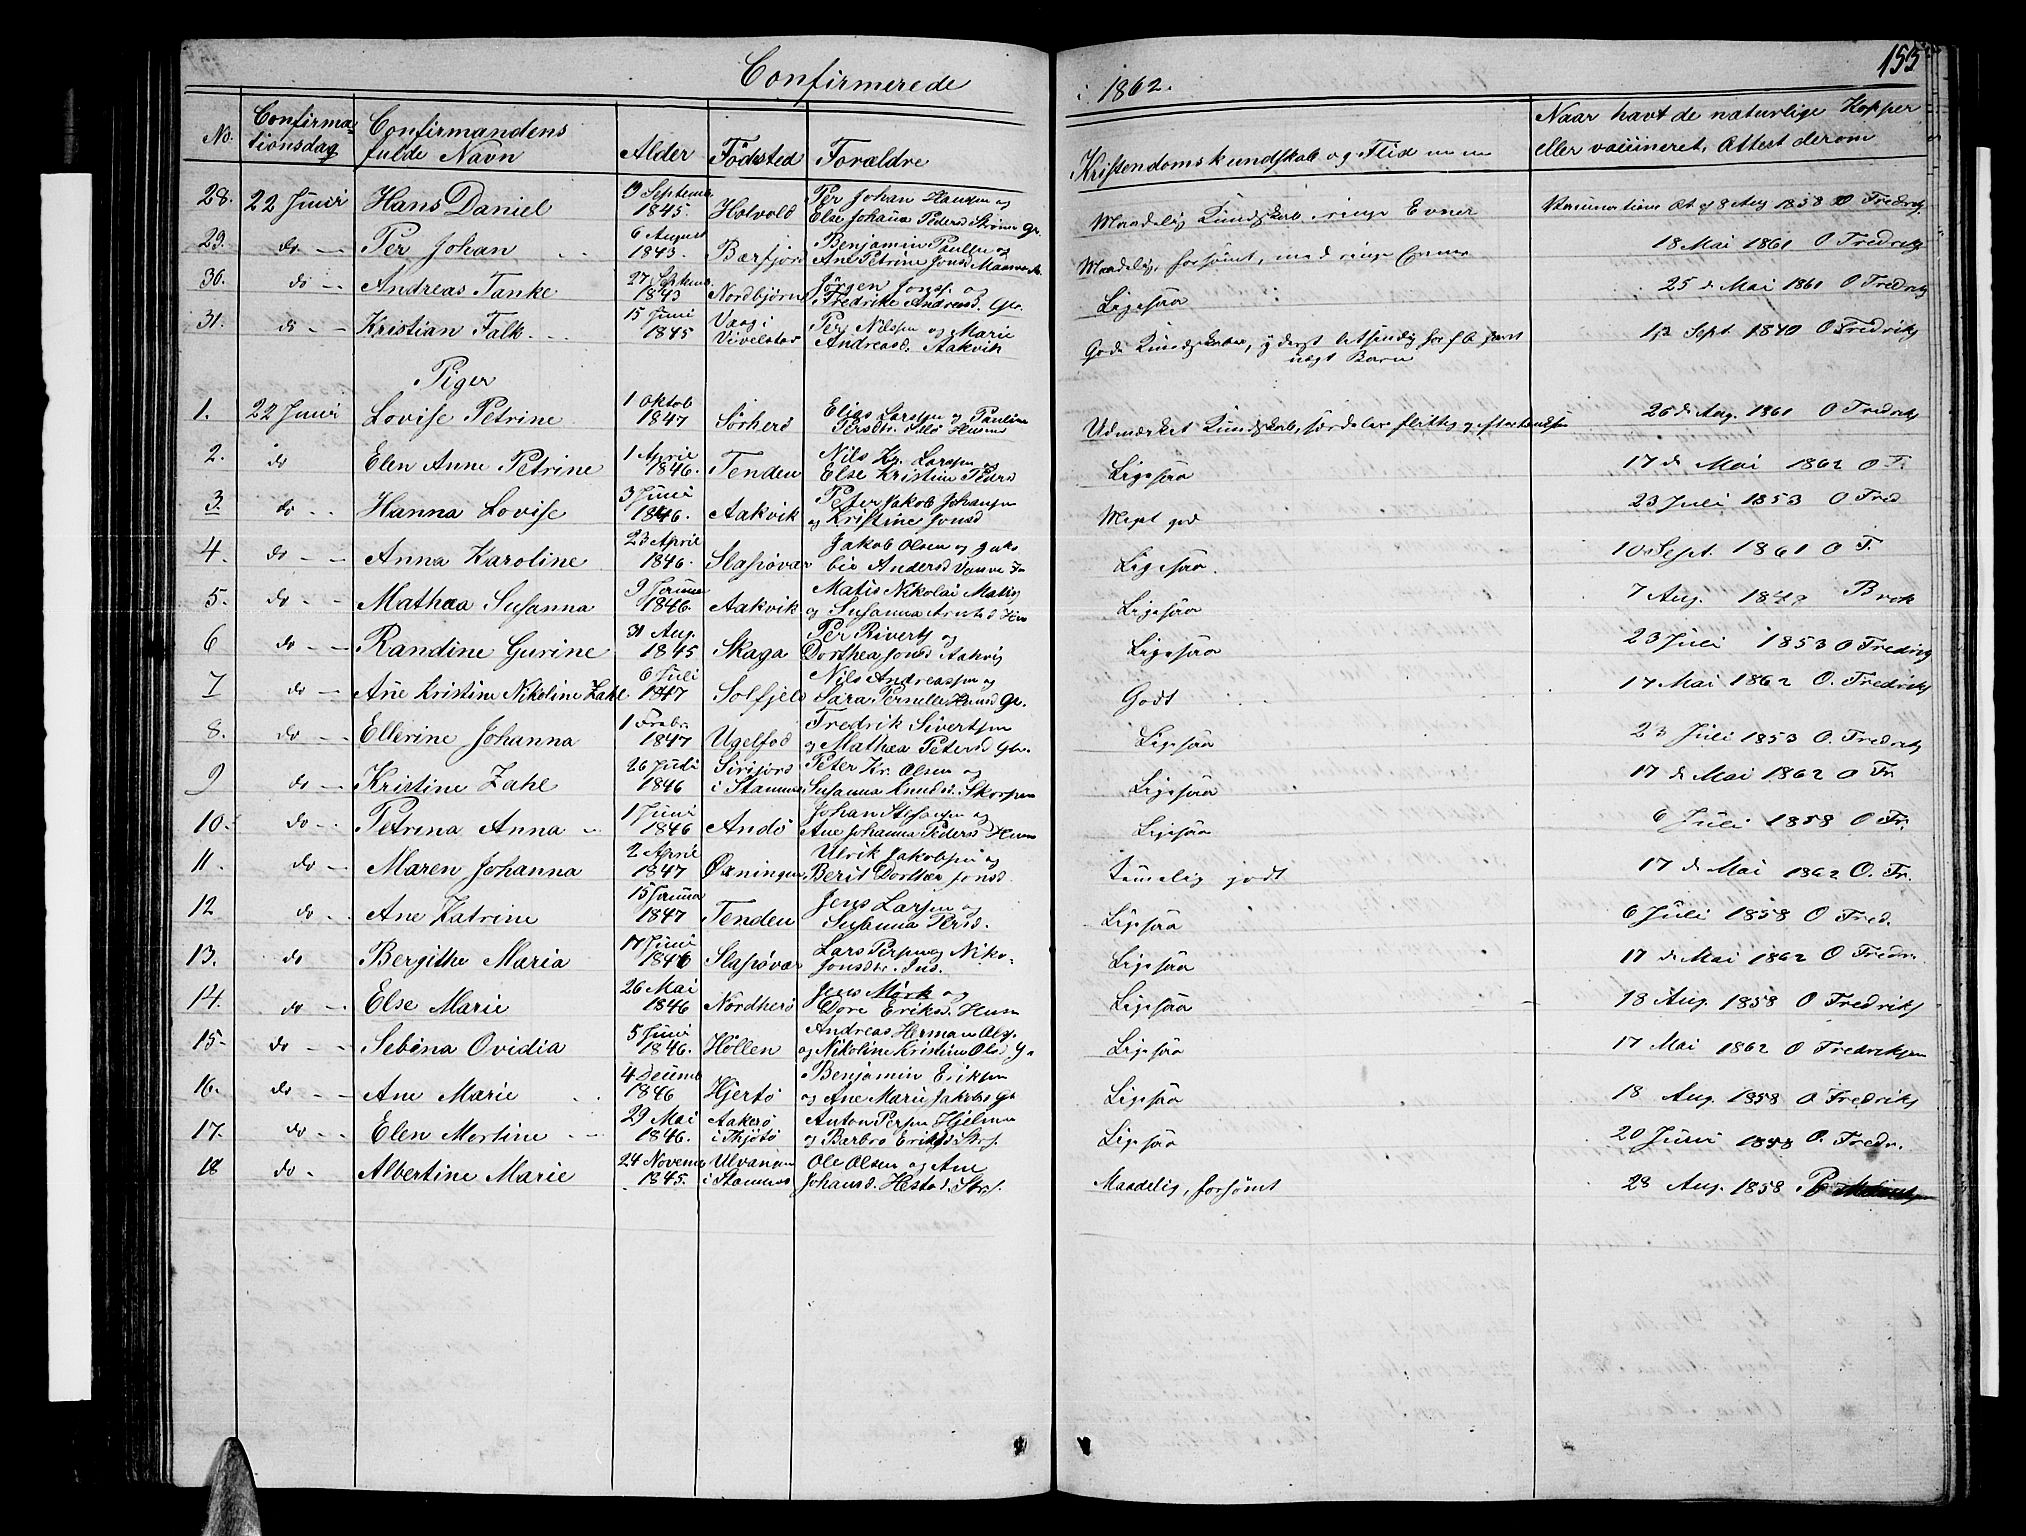 155
Confirmerede i 1862.
No. Confirmationsdag Confirmandens fulde Navn Alder Födsted Forældre Kristendomskundskab og Flid m m Naar havt de naturlige Kopper eller vaccineret, Attest derom
28. 22 Juni Hans Daniel 9 Septemb 1845. Holvold Per Johan Hansen og Else Johaña Peders Gr. Maadelig Kundskab ringe Evner 8 Aug 1858 O Fredrik
29. do Per Johan 6 August 1843. Bærfjord Benjamin Paulsen og Ane Petrine Jonsd Maadelig, forsömt, med ringe Evner 18 Mai 1861 O Fredrik
30. do Andreas Tanke 27 Septemb 1843 Nordbjörn Jörgen Jonss. og Fredrike Andreasd. Gr. Ligesaa 25 de Mai 1861 O Fredrik
31. do Kristian Falk 15 Juni 1845 Vaag i Vivelstad Per Nilssen og Marie Andreasd. Aakvik Godt Kundskaber, Barn 12 Sept. 1840 O Fredriks
Piger
1. 22 Juni Lovise Petrine 1 Oktob 1847 Sörherö Elias Larssen og Pauline Persdtr. Udmærket Kundskab, særdeles flittig 26 de Aug. 1861 O Fredrik
2. do Elen Anne Petrine 1 April 1846. Tenden Nils Kr. Larssen og Else Kristine Peders Ligesaa 17 de Mai 1862 O F.
3. do Hanna Lovise 3 Juni 1846. Aakvik Peter Jakob Johansen og Kristine Jonsd Meget god 23 Juli 1853 O Fred
4. do Anna Karoline 23 April 1846. Slapövær Jakob Olsen og Jakobie Andersd Ligesaa. 10 Sept. 1861 O F.
5. do Mathea Susanna 9 Januar 1846. Aakvik Matis Nikolai Matis og Susanna Ligesaa 7 Aug. 1849 Brok
6 do Randine Gurine 31 Aug. 1845 Skaga Per Siverts og Dorthea Jonsd Aakvig Ligesaa 23 Juli 1853 O Fredrik
7 do Añe Kristine Nikoline Zahl 6 Juli 1847 Solfjeld Nils Andreassen og Sara Pernille Gr. Godt 17 Mai 1862 O. Fredriks
8. do Ellerine Johanna 1 Febr. 1847 Ugelfod Fredrik Sivertsen og Mathea Petersd Ligesaa 23 Juli 1853 O. Fredrik
9 do Kristine Zahl 26 Juli 1846 Sörfjord i Stamnes Peter Kr. Olsen og Susanna Knudsd. Skorpen Ligesaa 17 de Mai 1862 O Fr
10. do Petrina Anna 1 Juni 1846 Andö Johan Steffensen og Ane Johanna Peders Ligesaa 6 Juli 1858 O Fr.
11. do Maren Johanna 2 April 1847 Øxningen Ulrik Jakobsen og Berit Dorthea Jonsd. temelig godt 17 de Mai 1862 O. Fr.
12 do Ane Katrine 15 Januar 1847 Tenden Jens Larsen og Susanna Persd. Ligesaa 6 Juli 1858 O Fred.
13. do Bergithe Maria 17 Juni 1846 Slapövær Lars Persen og Niko- Jonsdtr. Ligesaa 17 de Mai 1862 O Fredr.
14. do Else Marie 26 Mai 1846 Nordherö Jens Mörk og Dore Eriksd. Husm Ligesaa 18 Aug. 1858 O Fredriks
15. do Sebina Ovidia 5 Juni 1846. Höllen Andreas Herman Ols. og Nikoline Kristine Olsd Ligesaa 17 Mai 1862 O Fredriksen
16. do Ane Marie 4 Decemb 1846 Hjertö Benjamin Eriksen og Ane Marie Jakobs Ligesaa 18 Aug. 1858 O Fredriks
17. do Elen Mortine 29 Mai 1846. Aakerö i Thjötö Anton Persen Hjelm og Barbro Eriksd. Ligesaa 20 Juni 1858 O. Fredr.
18 do Albertine Marie 24 Novemb 1845. Ulvangen i Stamnes Ole Olsen og Ane Johansd. Hestad. Maadelig, forsömt 28 Aug. 1858